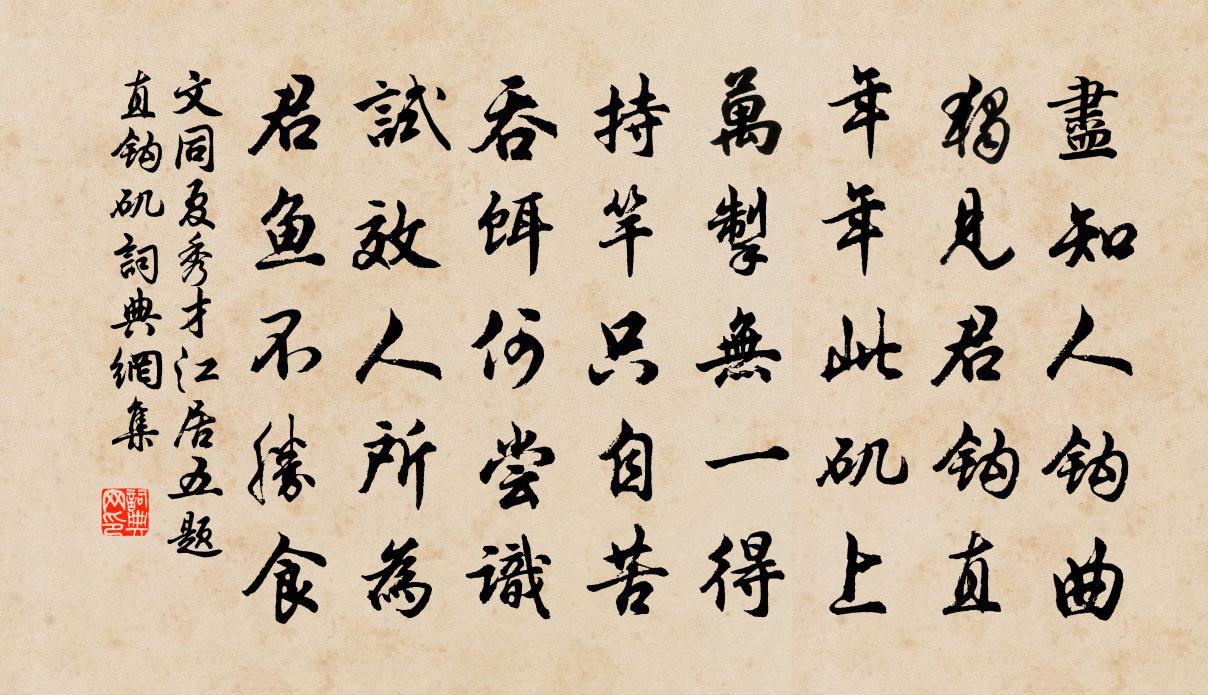 盡知人鈎曲
獨見君鈎直
年年此矶上
萬掣無一得
持竿只自苦
吞餌何尝識
試效人所為
君鱼不勝食
文同夏秀才江居五题
直鈎矶詞典網集
詞典网印